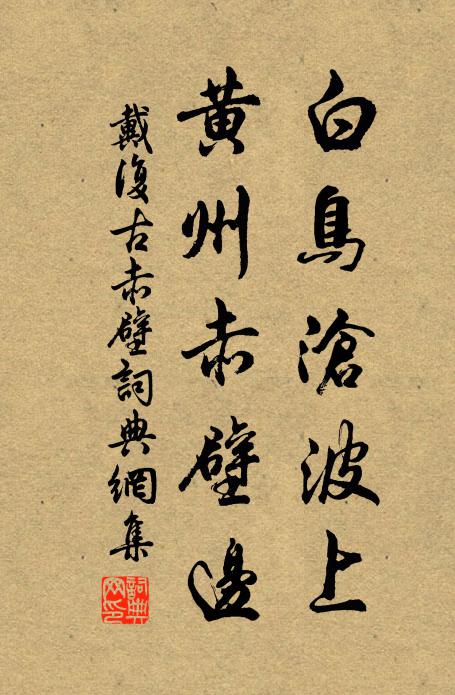 白鳥滄波上
黃州赤壁邊
戴復古赤壁詞典網集
詞典网印